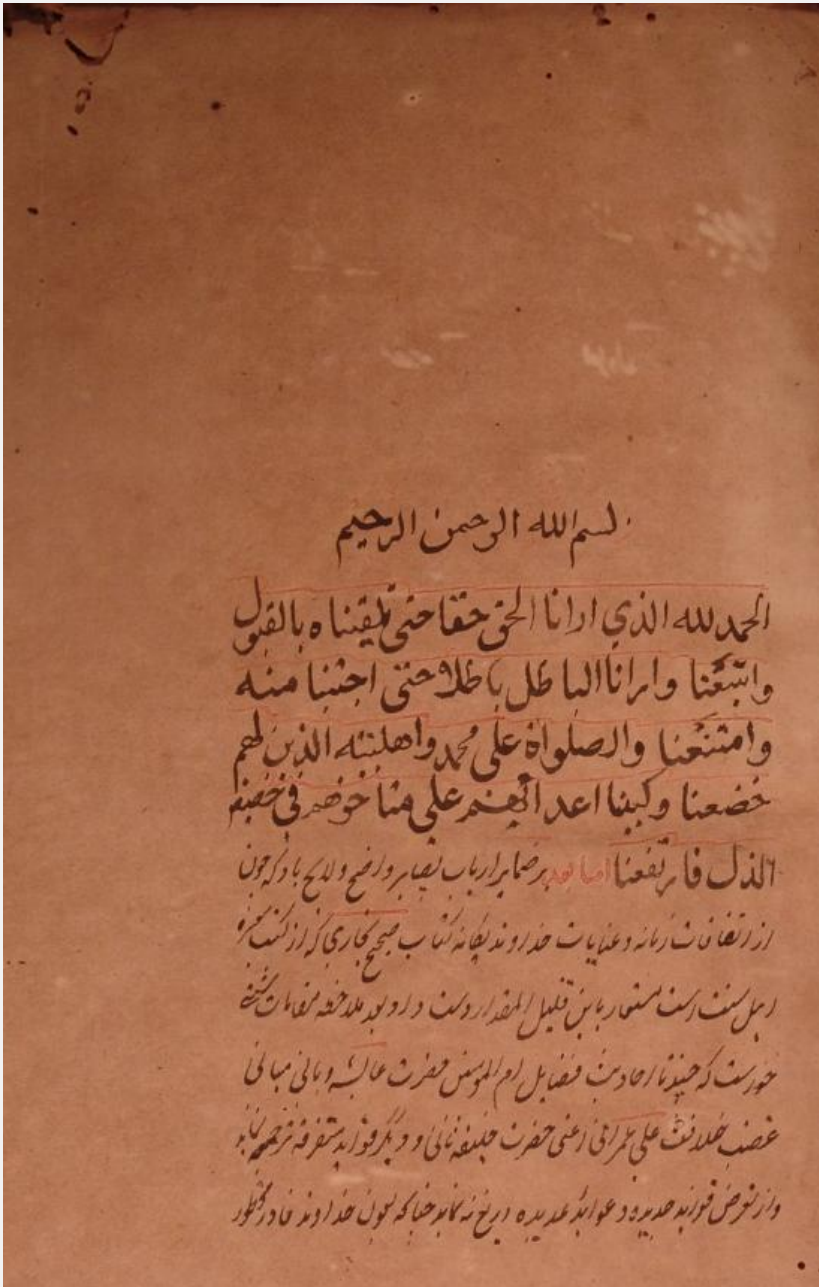 بسم الله الرحمن الرحيم
الحمد لله الذي ارانا الحق حقا حتى تلقيناه بالقبول
واتبعنا وارانا الباطل باطلا حتى اجتبنا منه
وامتنعنا والصلواة على محمد واهلبيته الذين لهم
خضعنا وكبينا اعدائهم على مناخرهم في حضيض
الذل فارتفعنا اما بعد بر ضماير ارباب بصاير واضح ولايح باد كه چون
از اتفاقات زمانه وعنايات خداوند يگانه كتاب صحيح بخاري كه از كتب
اهل سنت است مستعار باين قليل المقدار دست داد وبعد ملاحظه مقامات
خواست كه چندتا احاديث فضايل ام المومنين حضرت عايشه وباني مباني
غصب خلافت على عمراني اعنى حضرت خليفه ثاني وديگر فوايد متفرقه ترجمه نمايد
واز تعرض فوايد جديده وعوايد عديده دريغ نه نمايد چنانكه بعون خداوند قادر